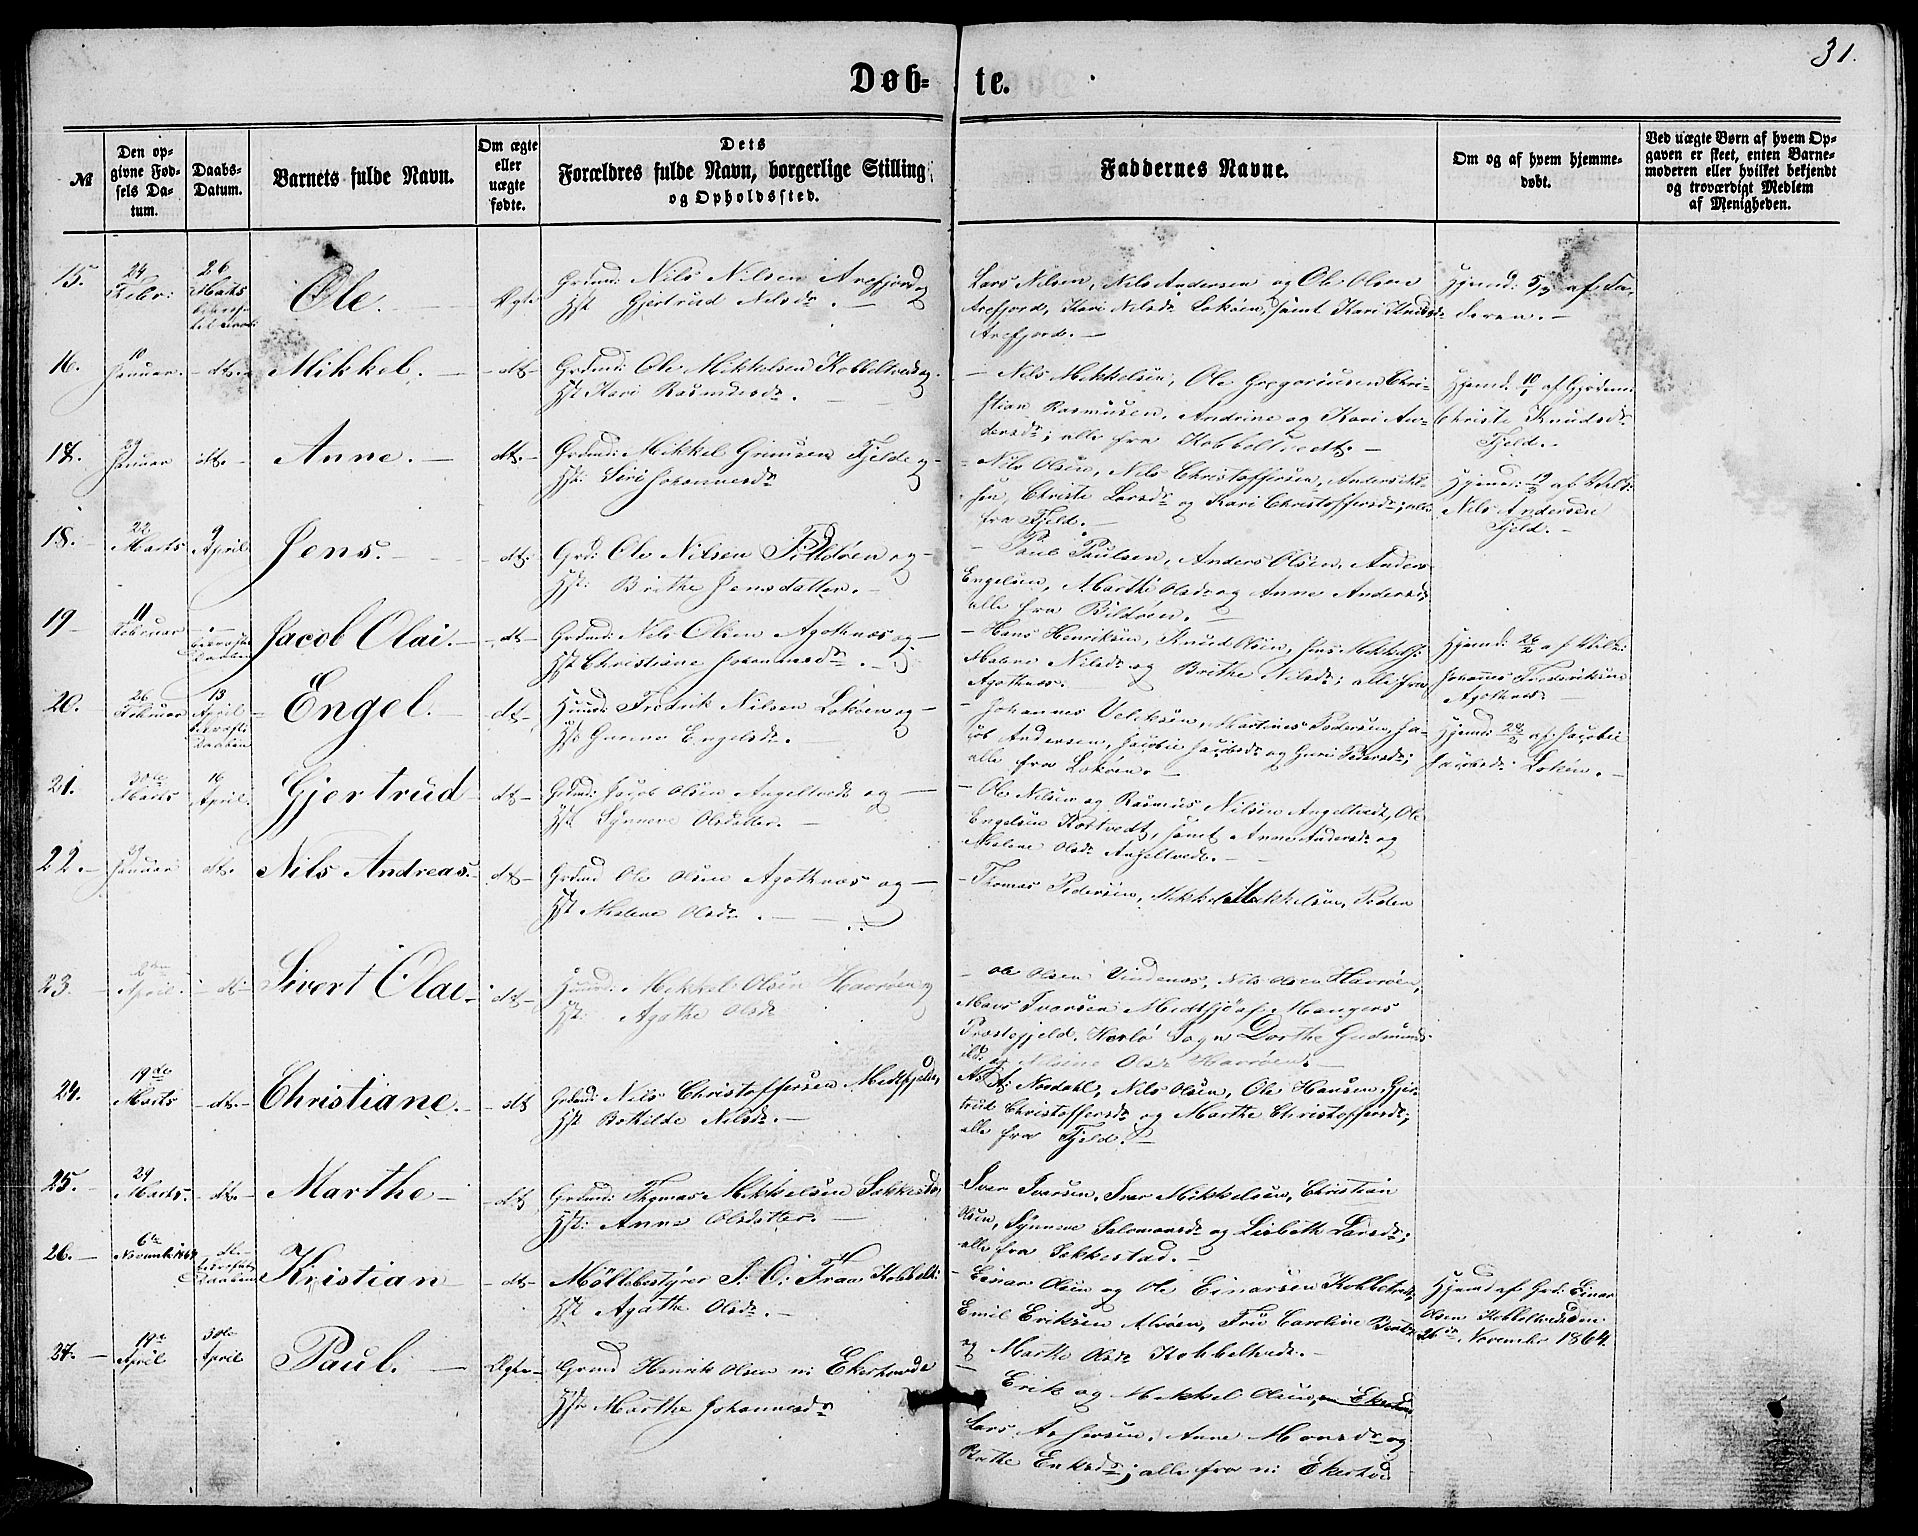 31.
Døb- te.
№
Den opgivne Fødsels Datum.
Daabs-Datum.
Barnets fulde Navn.
Om ægte eller uægte fødte.
Dets Forældres fulde Navn, borgerlige Stilling og Opholdssted.
Faddernes Navne.
Om og af hvem hjemmedøbt.
Ved uægte Børn af hvem Opgaven er skeet, enten Barnemoderen eller hvilket bekjendt og troværdigt Medlem af Menigheden.
15. 24 Febr: 26 Marts
Ole.
Ægte
Grdmd: Nils Nilsen Arefjord og
Hst Gjertrud Nilsdr.
Lars Nilsen, Nils Andersen og Ole Olsen
Arefjord, Kari Nilsdr Lokøen, samt Kari Knudsdr
Arefjord.
Hjemd: 5/3 af Faderen.
16. 10 Januar. dt.
Mikkel.
dt
Grdmd: Ole Mikkelsen Kobbeltvedt og
Hst Kari Rasmusdr.
Nils Mikkelsen, Ole Gregoriusen Christian
Rasmusen, Andrine og Kari Andersdr;
alle fra Kobbeltvedt.
Hjemd: 10/1 af Gjordem:
Christi Knudsdr
Fjeld.
17. 29 Januar dt.
Anne.
dt.
Grdmd: Mikkel Grimsen Fjelde og
Hst: Siri Johannesdr
Nils Olsen, Nils Christoffersen, Anders Nilsen,
Christi Larsdr og Kari Christoffersdr; alle
fra Fjeld.
Nils Andersen
Fjeld.
18. 22 Marts 9 April
Jens.
dt.
Grd: Ole Nilsen Bildøen og
Hst: Brithe Jensdatter.
Paul Paulsen, Anders Olsen, Anders
Engelsen, Marthe Olsdr og Anne Andersdr
alle fra Bildøen.
19 11 Februar
Jacob Olai.
dt
Grdmd: Nils Olsen Agothnæs og
Hst Christiane Johannesdr.
Hans Henriksen, Knud Olsen, Jens Mikkels:
Malene Nilsdr og Brithe Nilsdr; alle fra
Agothnæs.
Hjemd: 26/2 af
Johannes Frederiksen
Agothnæs
20. 26 Februar 13 April
Engel.
dt
Huusmd: Fredrik Nilsen Lokøen og
Hst Gunna Engelsdr.
Johannes Velchsen, Martines Pedersen, Jacob
Andersen, Jacobie Jacobsdr og Guri Pedersdr;
alle fra Lokøen.
Hjemd: 28/2 af Jacobie
Jacobsdr Lokøen.
21. 30te Marts 16 April.
Gjertrud
dt
Grdmd: Jacob Olsen Angeltvedt og
Hst Synneve Olsdatter.
Ole Nilsen og Rasmus Nilsen Angeltvedt, Ole
Engelsen Kostvedt, samt Anne Andersdr og
Malene Olsdr Angeltvedt.
22. 29 Januar dt.
Nils Andreas.
dt
Grdmd Ole Olsen Agothnæs og
Hst Malene Olsdr.
Thomas Pedersen, Mikkel Mikkelsen, Peder
23. 2den April. dt
Sivert Olai.
dt
Huusmd: Mikkel Olsen Havrøen og
Hst: Agathe Olsdr
Ole Olsen Vindenæs, Nils Olsen Havrøen,
Mons Ivarsen Midtsjø af Mangers
Præstegjeld, Herlø Sogn Dorthe Gudmunds
Olsdr Havrøen.
24. 19de Marts dt.
Christiane.
dt
Grdmd: Nils Christoffersen Midtfjeld,
Hst Bothilde Nilsdr.
Nordahl, Nils Olsen, Ole Hansen, Gjertrud
Christoffersdr og Marthe Christoffersdr;
alle fra Fjeld.
25. 29 Marts. dt.
Marthe
dt
Grdmd: Thomas Mikkelsen Sækkestad,
Hst: Anne Olsdatter.
Iver Iversen, Iver Mikkelsen, Christian
Olsen, Synneve Salomonsdr og Lisbeth Larsdr;
alle fra Sækkestad.
26. 6te November 1864 dt
Kristian
dt
Møllebestyrer J. O: Fran Kobbelt:
Hst Agathe Olsdr.
Einar Olsen og Ole Einarsen Kobbeltvedt,
Emil Eriksen Alvøen, Fru Caroline
og Marthe Olsdr Kobbeltvedt.
Hjemd af Grd: Einar
Olsen Kobbeltvedt den
26de November 1864.
27. 19de April 30te April
Paul.
Ægte
Grdmd Henrik Olsen ni Ekerhovde
Hst Marthe Johannesdr
Erik og Mikkel Olsen,
Lars Anfinsen, Anne Monsdr og
Brithe Eriksdr; alle fra ni Ekerhov